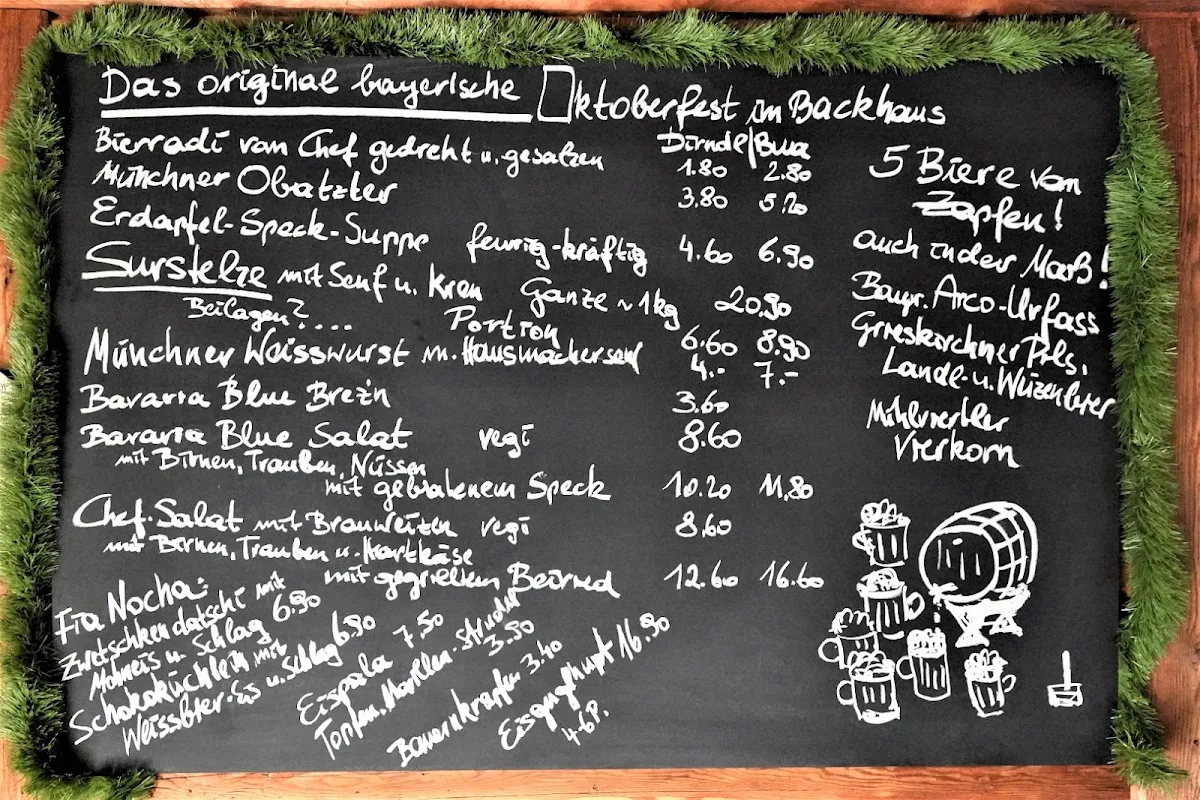 Das original bayerische Oktoberfest im Backhaus
Dirndl/Bua
Bierradi vom Chef gedreht u. gesalzen 1.80 2.80
Münchner Obatzter 3.80 5.20
Erdäpfel-Speck-Suppe feurig-kräftig 4.60 6.90
Surstelze mit Senf u. Kren Ganze ~ 1kg 20.90
Beilagen?.... Portion 6.60 8.90
Münchner Weisswurst m. Hausmachersenf 4.- 7.-
Bavaria Blue Brez'n 3.60
Bavaria Blue Salat vegi 8.60
mit Birnen, Trauben, Nüssen
mit gebratenem Speck 10.20 11.80
Chef-Salat mit Brauweizen vegi 8.60
mit Birnen, Trauben u. Hartkäse
mit gegrilltem Beiried 12.60 16.60
Fia Nocha:
Zwetschkendatschi mit
Mohneis u. Schlag 6.90
Schokoküchlein mit
Weissbier-Eis u. Schlag 6.90
Eispala 7.50
Topfen, Marillen-strudel
3.50
Bauernkrapfen 3.40
Eisgugelhupf 16.90
4-6 P.
5 Biere vom
Zapfen!
auch in der Maß!
Bayr. Arco-Urfass
Grieskirchner Pils,
Landl- u. Weizenbier
Mühlviertler
Vierkorn